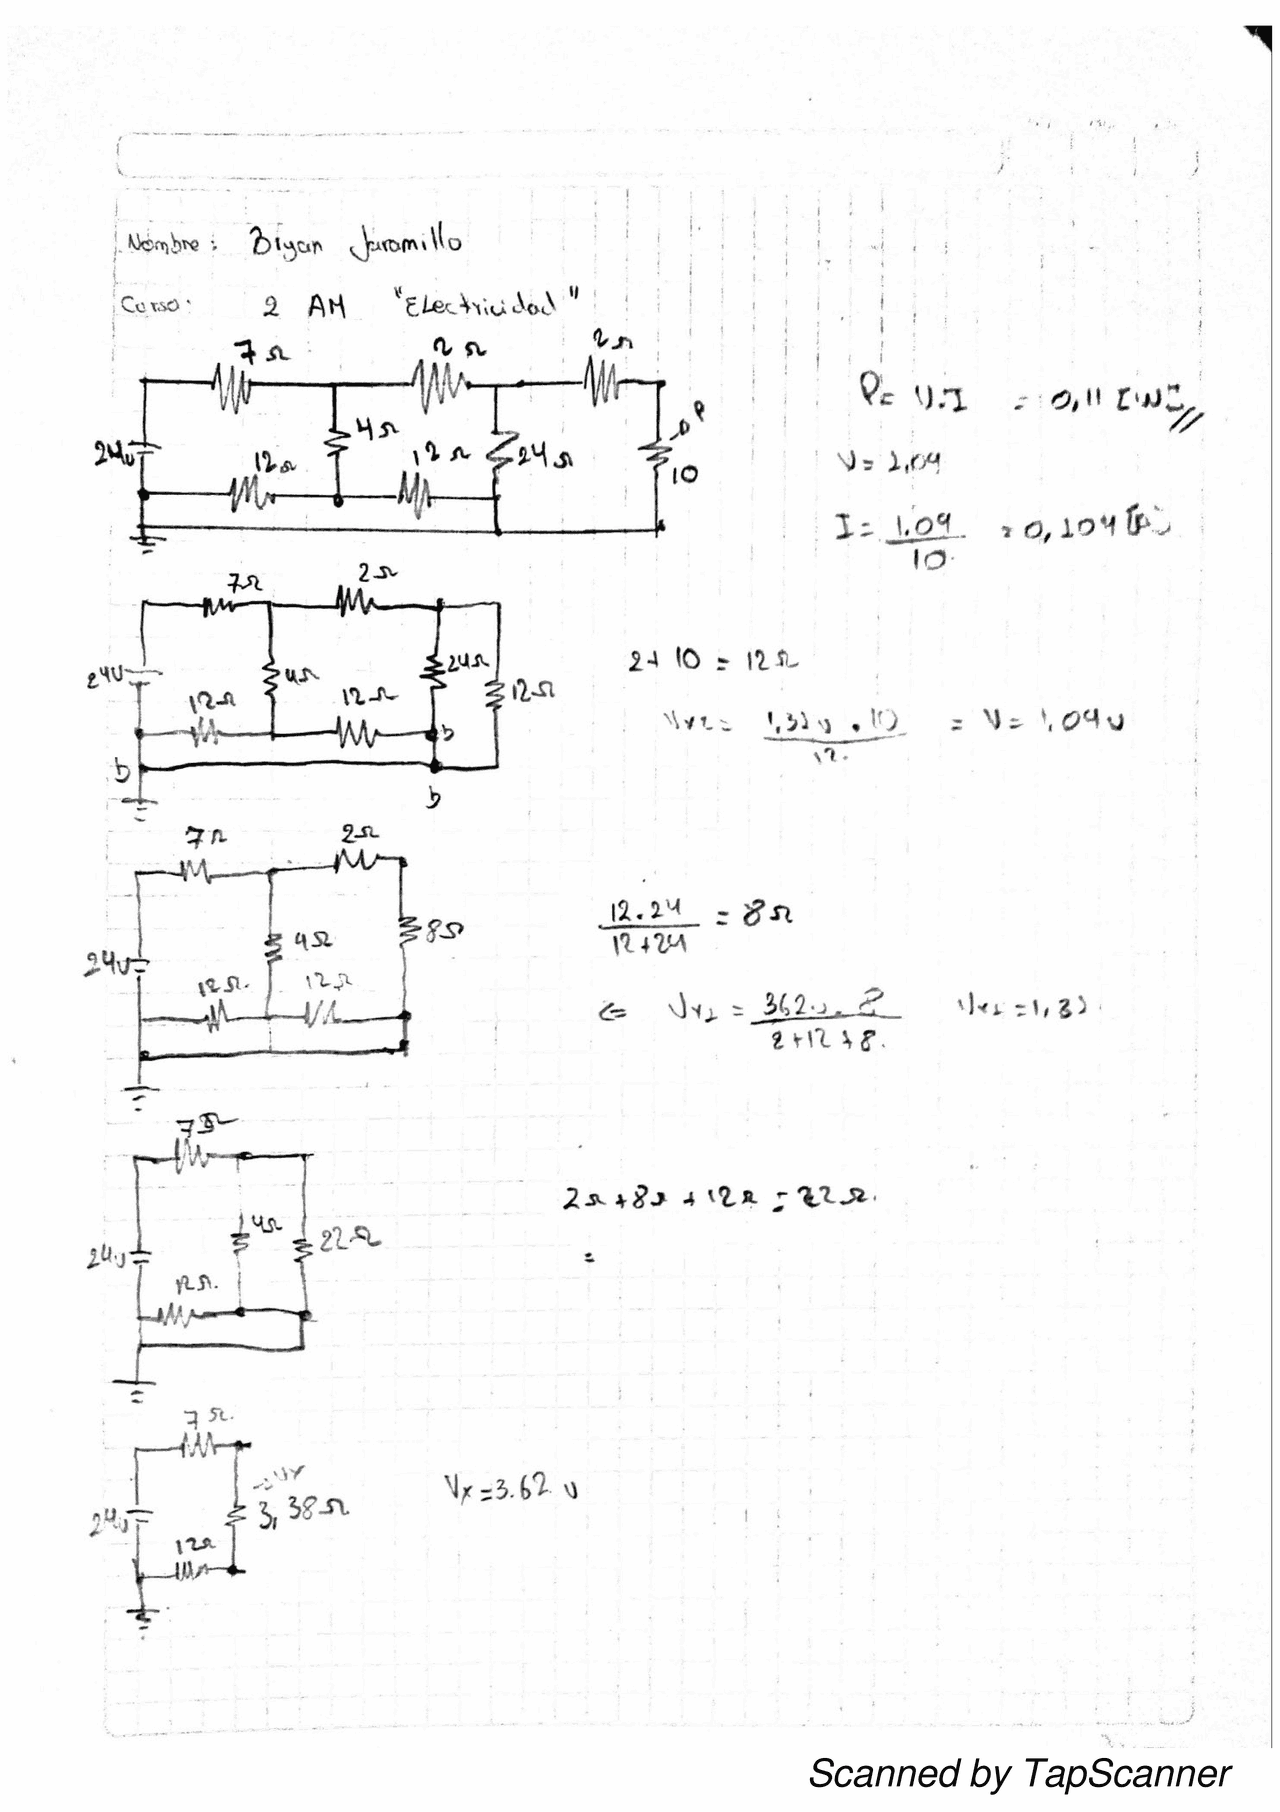 Nombre: Bryan Jaramillo
Curso: 2 AM "Electricidad"
7Ω 2Ω 2Ω
24v 4Ω 24Ω P
12Ω 12Ω 10
P= V.I = 0,11 [W]//
V= 1,04
I= 1.04/10 = 0,104 [A]
7Ω 2Ω
24v 4Ω 24Ω 12Ω
12Ω 12Ω b
b b
2+10 = 12Ω
= V= 1,04v
7Ω 2Ω
24v 4Ω 8Ω
12Ω. 12Ω
12.24/12+24 = 8Ω
2+12+8.
7Ω
24v 4Ω 22Ω
12Ω.
2Ω+8Ω+12Ω = 22Ω.
=
7Ω.
24v Vx 3,38Ω
12Ω
Vx=3.62 v
Scanned by TapScanner